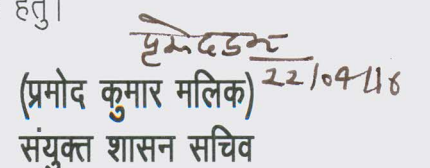 हेतु।
22/04/18
(प्रमोद कुमार मलिक)
संयुक्त शासन सचिव